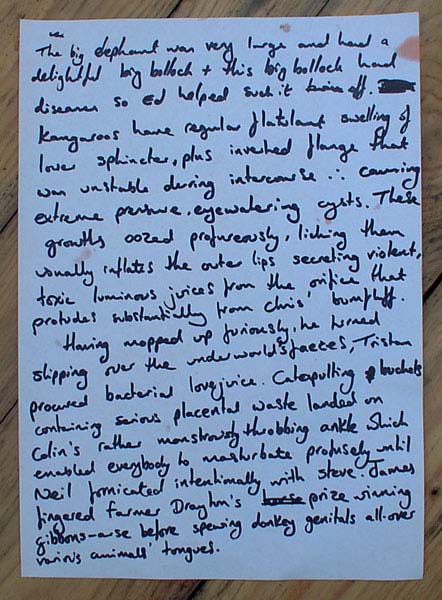 The big elephant was very large and had a
delightful big bollock + this big bollock had
diseases so Ed helped suck it off.
Kangaroos have regular flatulant swelling of
lower sphincter, plus inverted flange that
was unstable during intercourse ∴ causing
extreme pressure, eyewatering cysts. These
growths oozed profuseously, licking them
usually inflates the outer lips secreting violent,
toxic luminous juices from the orifice that
protudes substantially from Chris' bumfluff.
Having mopped up furiously, he turned
slipping over the underworld's faeces, Tristan
procured bacterial lovejuice. Catepulting buckets
containing serious placental waste landed on
Colin's rather monstrously throbbing ankle which
enabled everybody to masturbate profusely until
Neil fornicated intentionally with steve. James
fingered farmer Drayton's prize winning
gibbons-arse before spewing donkey genitals all over
various animals' tongues.